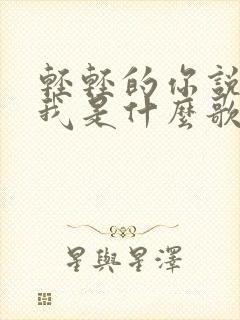 輕輕的你説
我是什麼歌
星與星澤